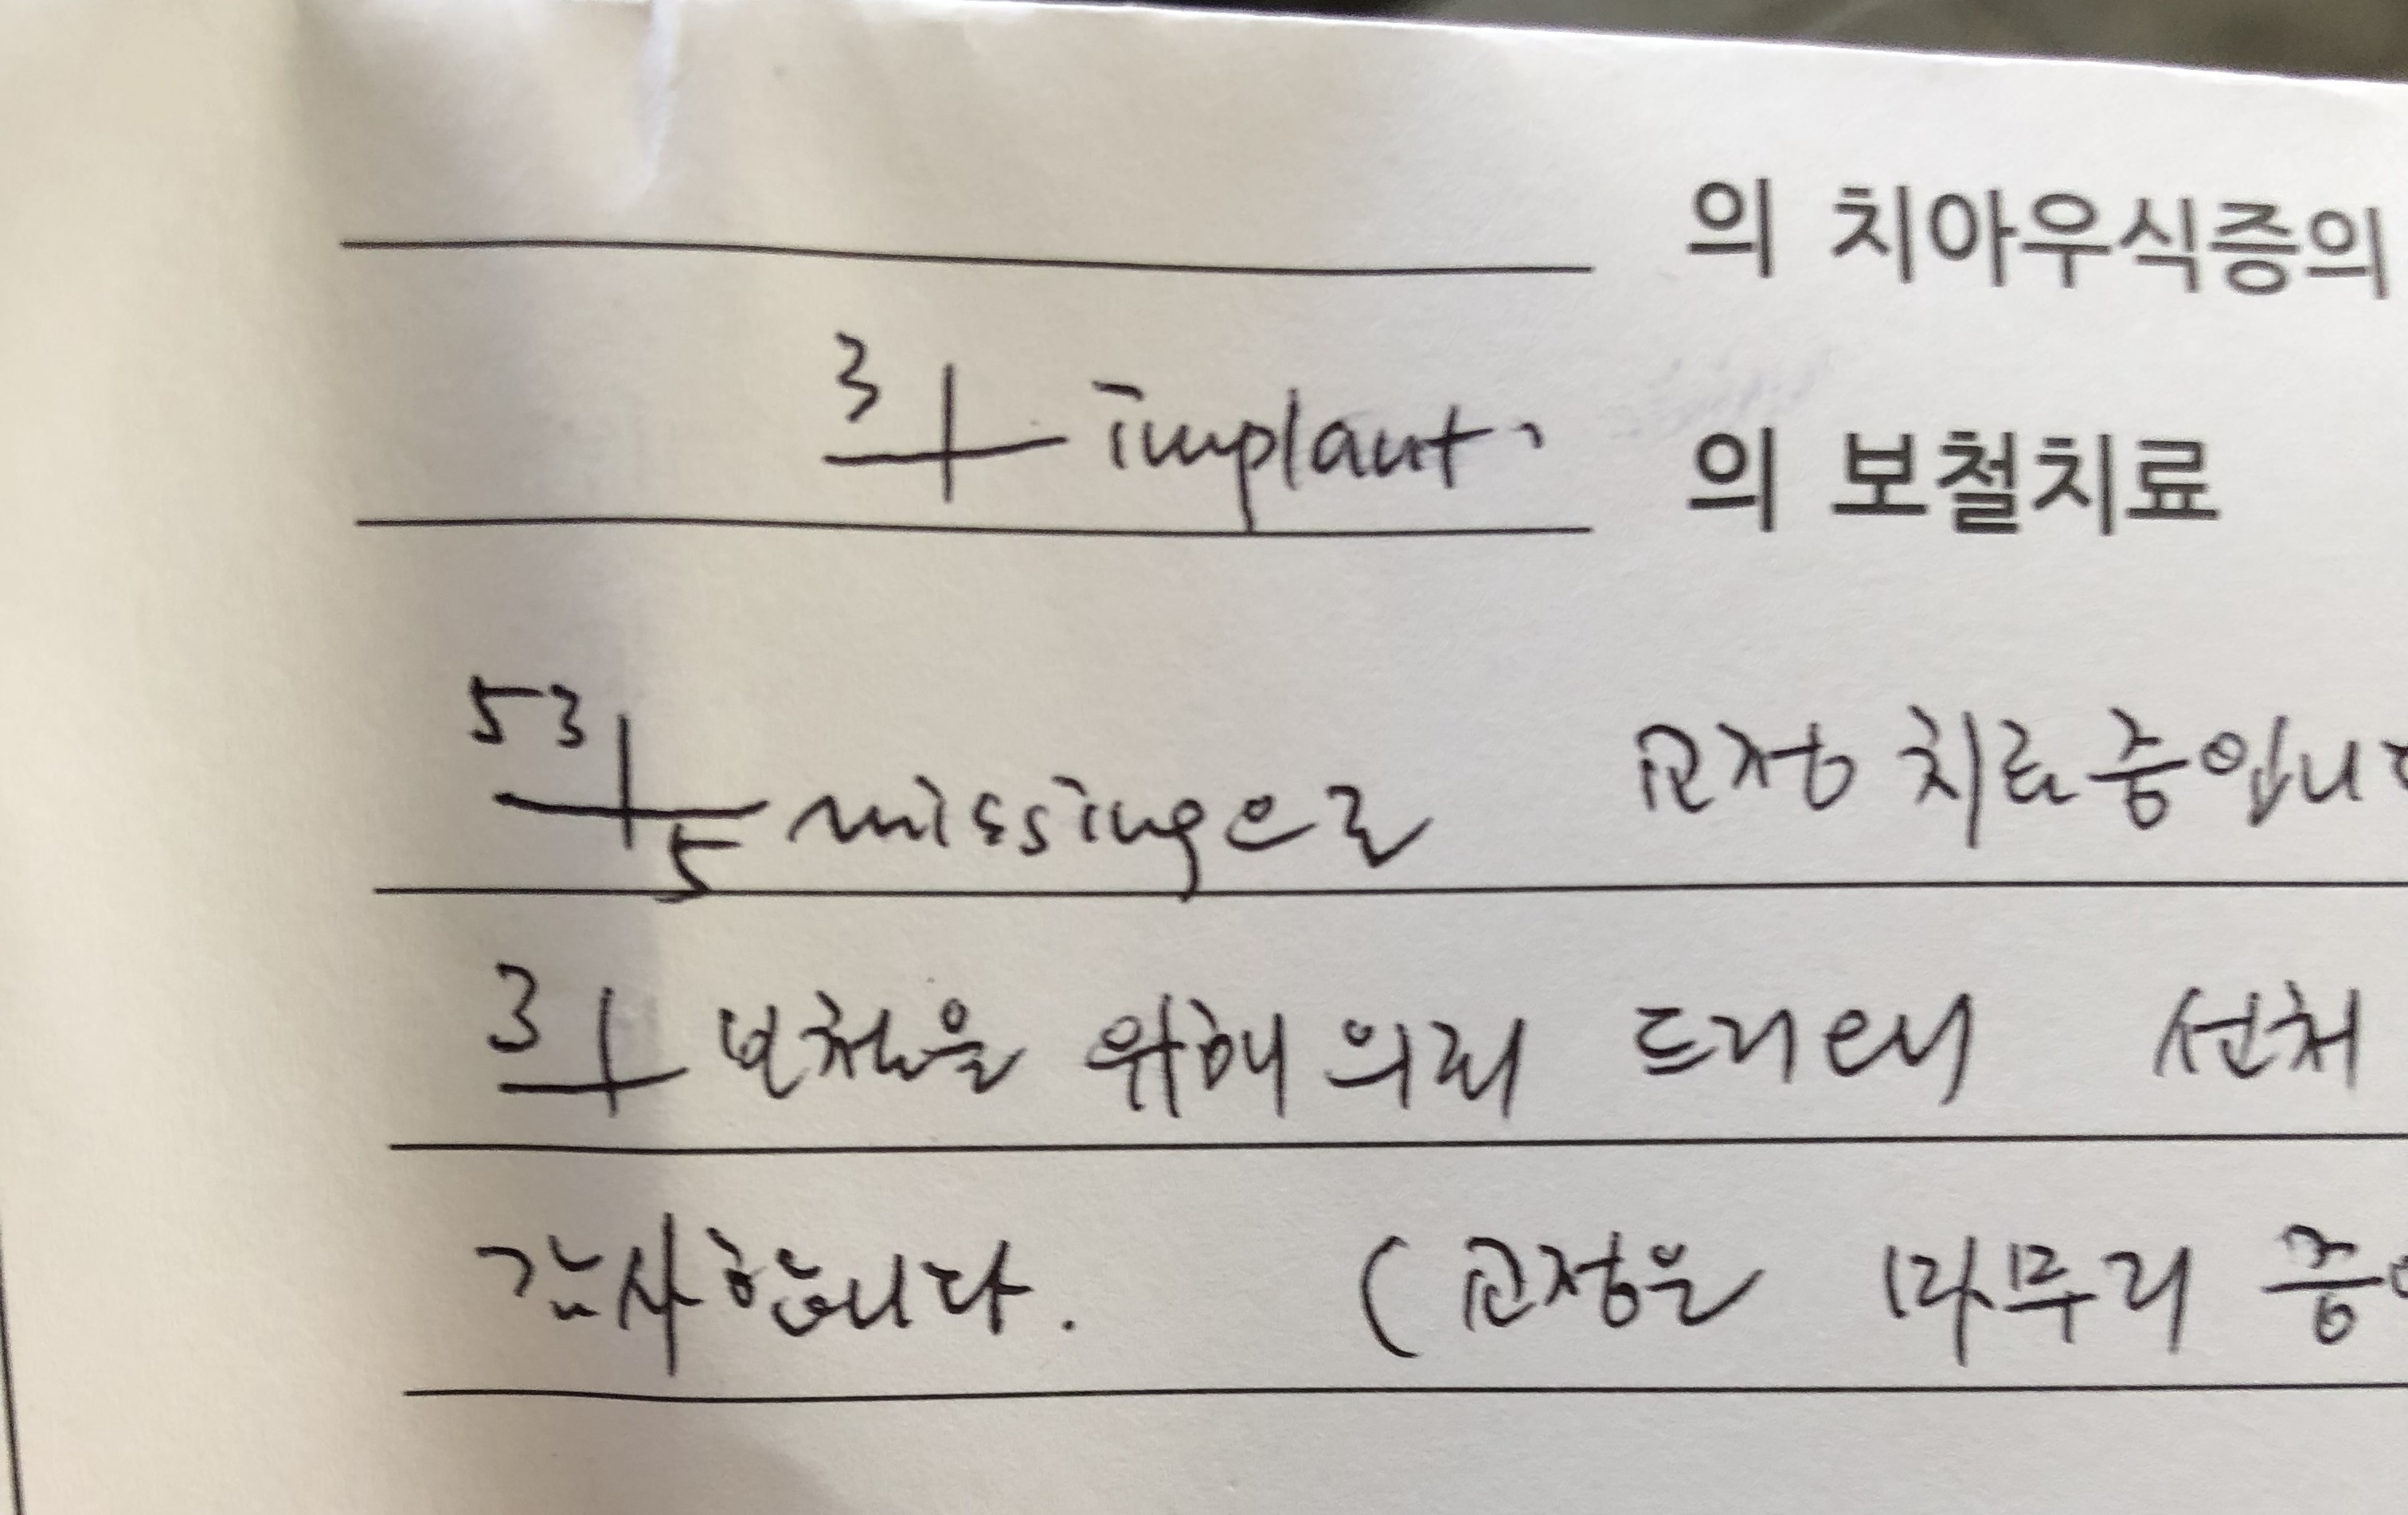 의 치아우식증의
3┘ implant 의 보철치료
53┼5 missing으로 교정 치료중입니
3┘ 보철을 위해 의뢰 드리오니 선처
감사합니다. (교정은 마무리 중